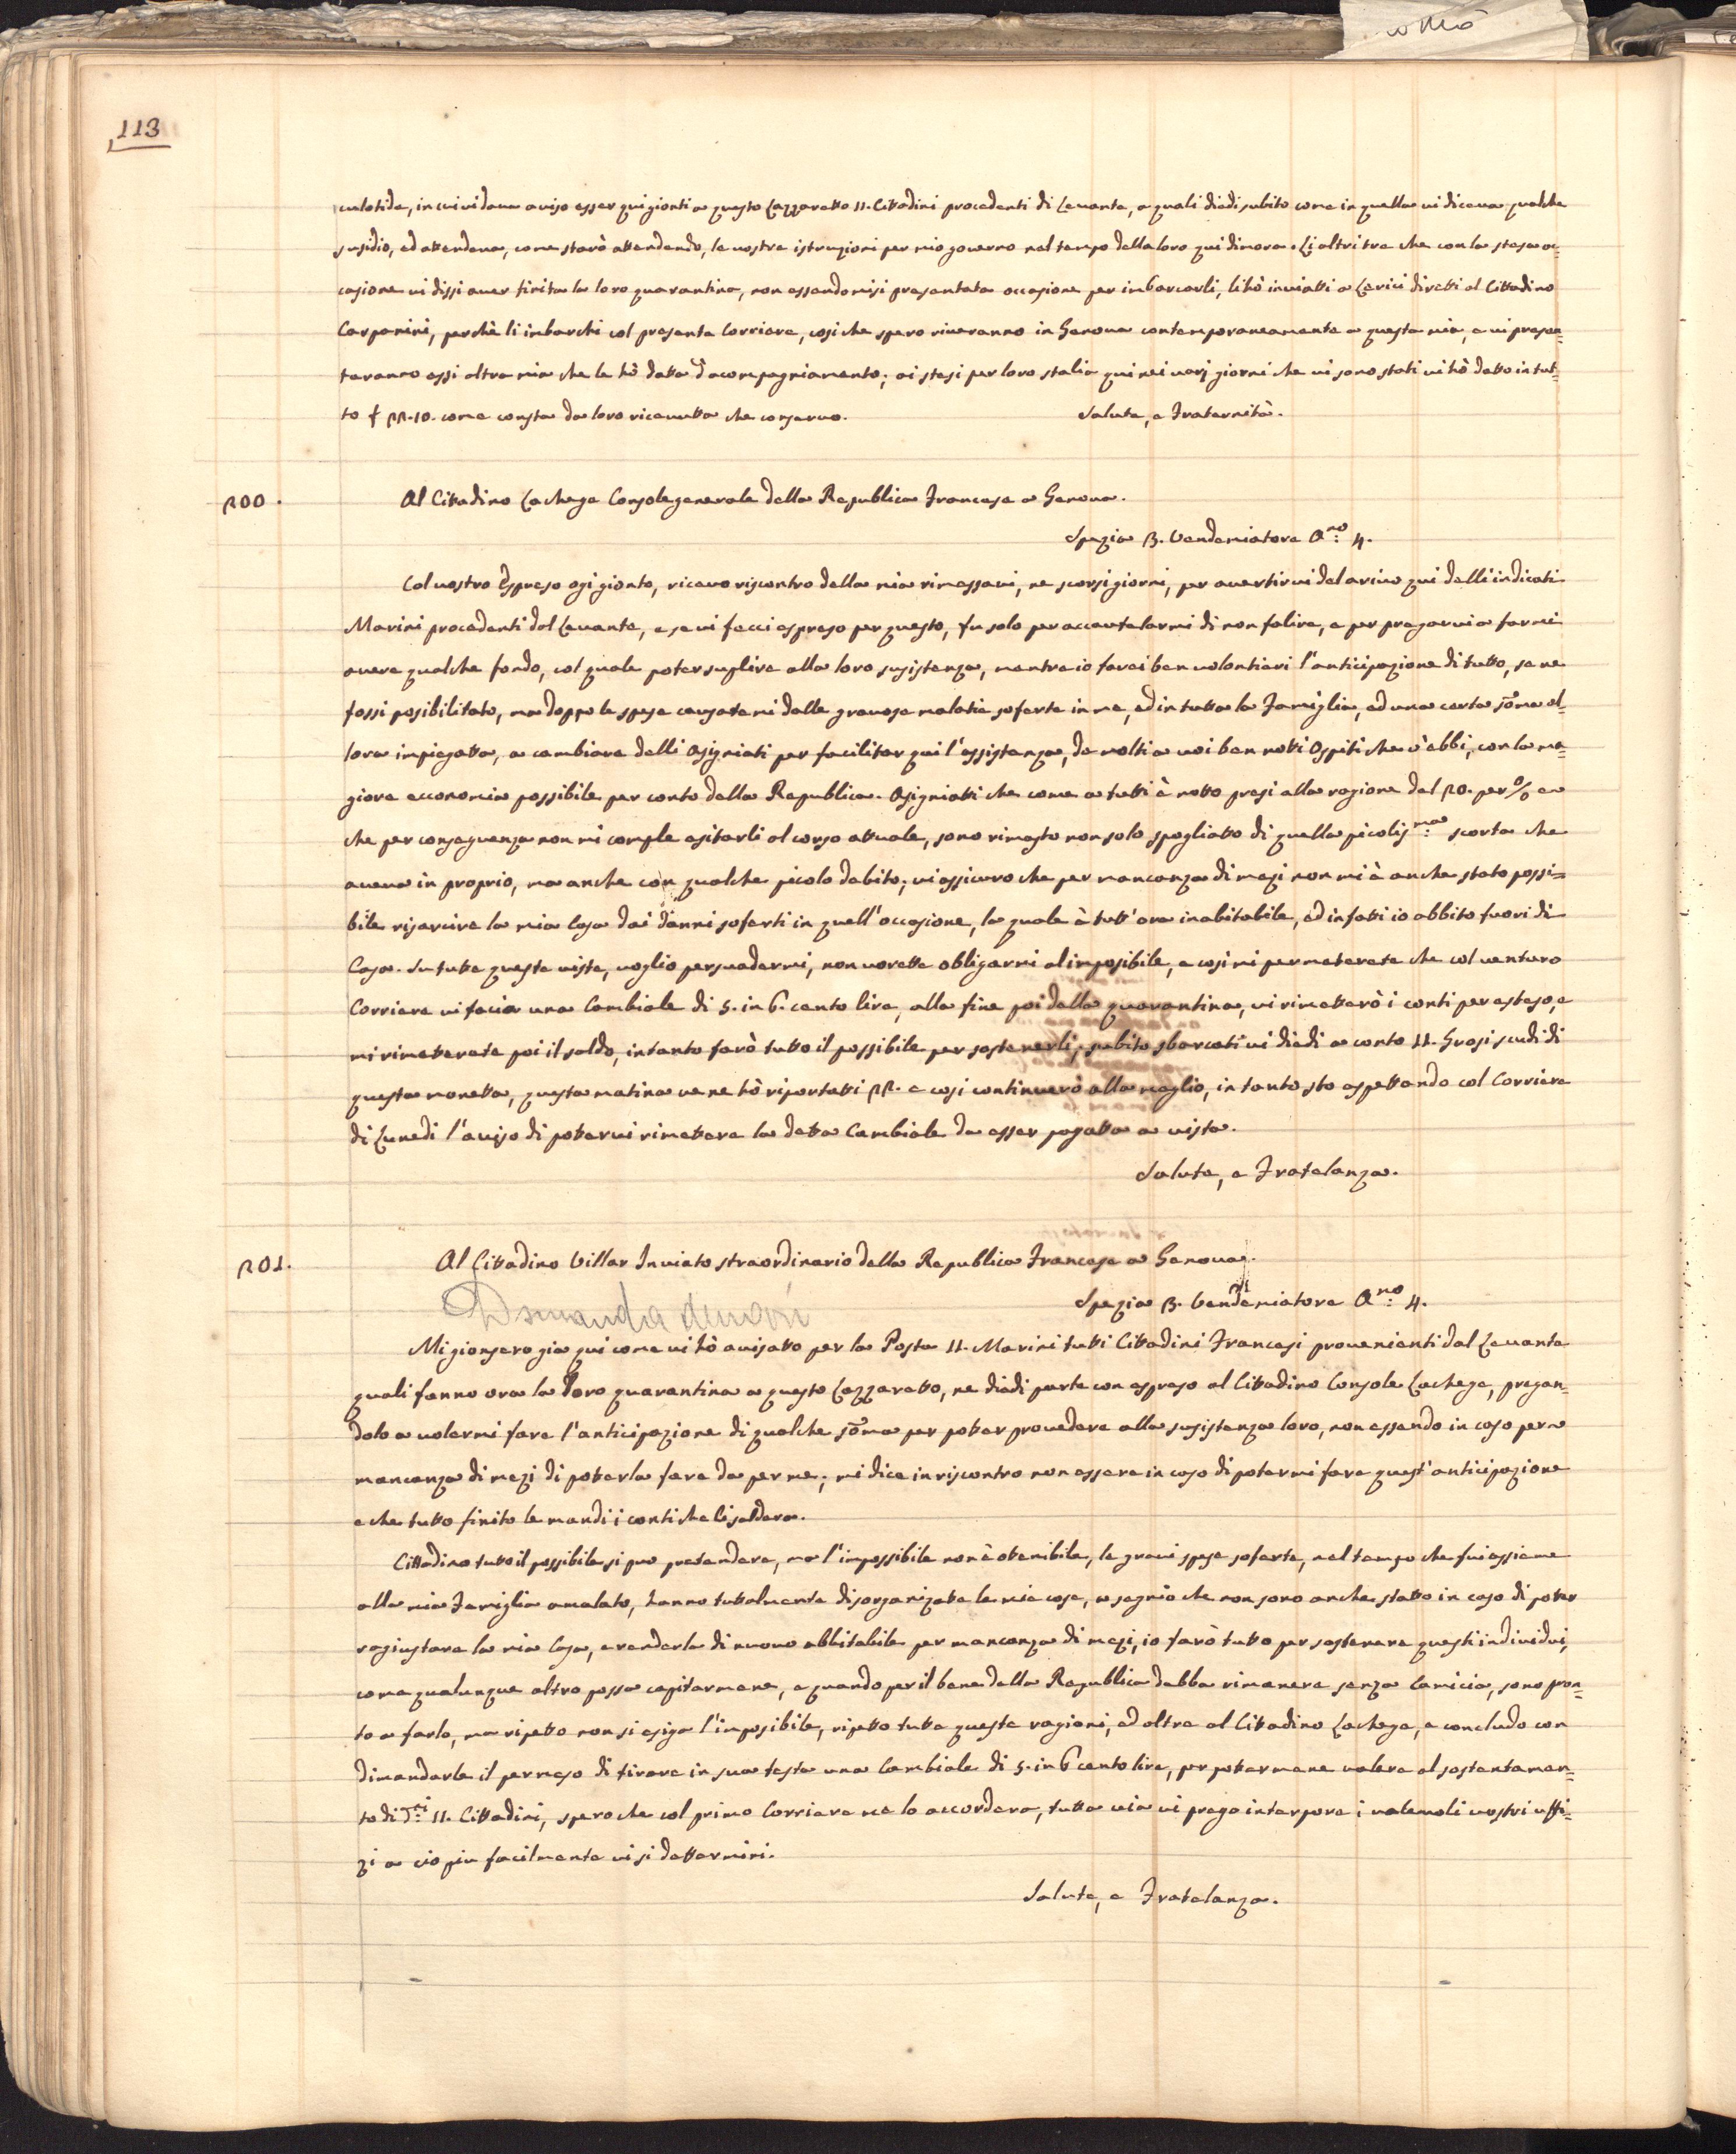 113
culotide, in cui vi dava aviso esser qui gionti a questo Lazzaretto 11. Cittadini procedenti di Levante, a quali diedi subito come in quella vi diceva qualche
susidio, ed attendeva, come starò attendendo, le vostre istruzioni per mio governo nel tempo della loro qui dimora. Li altri tre che con la stesa oc-
casione vi dissi aver finita la loro quarantina, non essendomisi presentata occasione per imbarcarli, li hò inviatti a Lerici diretti al Cittadino
Carpanini, perchè li imbarchi col presente Corriere, cosi che spero riveranno in Genova contemporaneamente a questa mia, e vi presen=
teranno essi altra mia che le hò data d'acompagniamento; ai stesi per loro stalia qui nei varj giorni che vi sono stati vi hò datto in tut=
to £ 22.10. come consta da loro ricevutta che conservo. Salute, e Fraternità.
200. Al Cittadino Lachege Console generale della Republica Francese a Genova.
Spezia 3. Vendemiatore Ano: 4.
Col vostro Espreso ogi gionto, ricevo riscontro della mia rimessavi, ne scorsi giorni, per avertirvi del arivo qui delli indicati
Marini procedenti dal Levante, e se vi facci espreso per questo, fu solo per accautelarmi di non falire, e per pregarvi a farmi
avere qualche fondo, col quale poter suplire alla loro susistenza, mentre io farei ben volontieri l'anticipazione di tutto, se ne
fossi posibilitato, ma doppo le spese causatemi dalle gravose malatie soferte in me, ed in tutta la Famiglia, ed una certa sõma al-
lora impiegatta, a cambiare delli Asigniati per facilitar qui l'assistenza, da molti a voi ben notti Ospiti che v'ebbi, con la ma-
giore ecconomia possibile per conto della Republica. Asigniatti che come a tutti è notto presi alla ragione del 20. per % e
che per conseguenza non mi comple esitarli al corso attuale, sono rimasto non solo spogliatto di quella picolis:ma scorta che
aveva in proprio, ma anche con qualche picolo debito; vi assicuro che per mancanza di mezi non mi è anche stato possi=
bile risarcire la mia Casa dai danni soferti in quell'occasione, la quale è tutt'ora inabitabile, ed infatti io abbito fuori di
Casa. In tutte queste viste, voglio persuadermi, non vorette obligarmi al imposibile, e cosi mi permeterete che col venturo
Corriere vi facia una Cambiale di 5. in 6. cento lire, alla fine poi della quarantina, vi rimetterò i conti per esteso, e
mi rimetterete poi il saldo, intanto farò tutto il possibile per sostenerli, subito sbarcati vi diedi a conto 11. Grosi scudi di
questa monetta, questa matina ve ne hò riportatti 22. e cosi continuerò alla meglio, in tanto sto aspettando col Corriere
di Lunedi l'aviso di potervi rimettere la detta Cambiale da esser pagatta a vista.
Salute, e Fratelanza.
201. Al Cittadino Villar Inviato straordinario della Republica Francese a Genova.
Spezia 3. Vendemiatore Ano: 4.
Domanda denari
Mi gionsero gia qui come vi hò avisatto per la Posta 11. Marini tutti Cittadini Francesi provenienti dal Levante
quali fanno ora la loro quarantina a questo Lazzaretto, ne diedi parte con espreso al Cittadino Console Lachege, pregan=
dolo a volermi fare l'anticipazione di qualche sõma per poter provedere alla susistenza loro, non essendo in caso per
mancanza di mezi di poterla fare da per me; mi dice in riscontro non essere in caso di potermi fare quest'anticipazione
e che tutto finito le mandi i conti che li salderà.
Cittadino tutto il possibile si può pretendere, ma l'impossibile non è otenibile, le gravi spese soferte, nel tempo che fui assieme
alla mia Famiglia amalato, hanno tottalmente disorganizatte le mie cose, a segnio che non sono anche statto in caso di poter
ragiustare la mia Casa, e renderla di nuovo abbitabile per mancanza di mezi, io farò tutto per sostenere questi individui,
come qualunque altro possa capitarmene, e quando per il bene della Republica debba rimanere senza Camicia, sono pron=
to a farlo, ma ripetto non si esiga l'imposibile, ripetto tutte queste ragioni, ed altre al Cittadino Lachege, e concludo con
dimandarle il permeso di tirare in sua testa una Cambiale di 5. in 6 cento lire, per potermene valere al sostentamen=
to di d:ti 11. Cittadini, spero che col primo Corriere me lo accorderà, tutta via vi prego interpore i valevoli vostri uffi=
zi a ciò più facilmente vi si dettermini.
Salute, e Fratelanza.